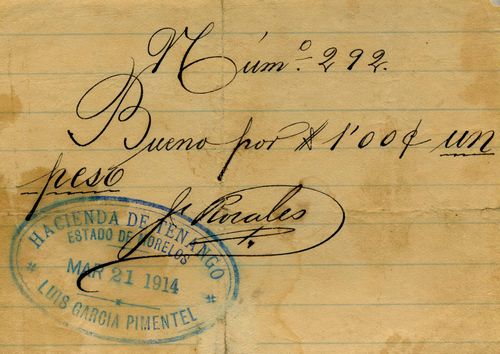 Núm.º 292.
Bueno por $ 1'00¢ un
peso
J. Rosales
HACIENDA DE TENANGO
ESTADO DE MORELOS
MAR 21 1914
LUIS GARCIA PIMENTEL